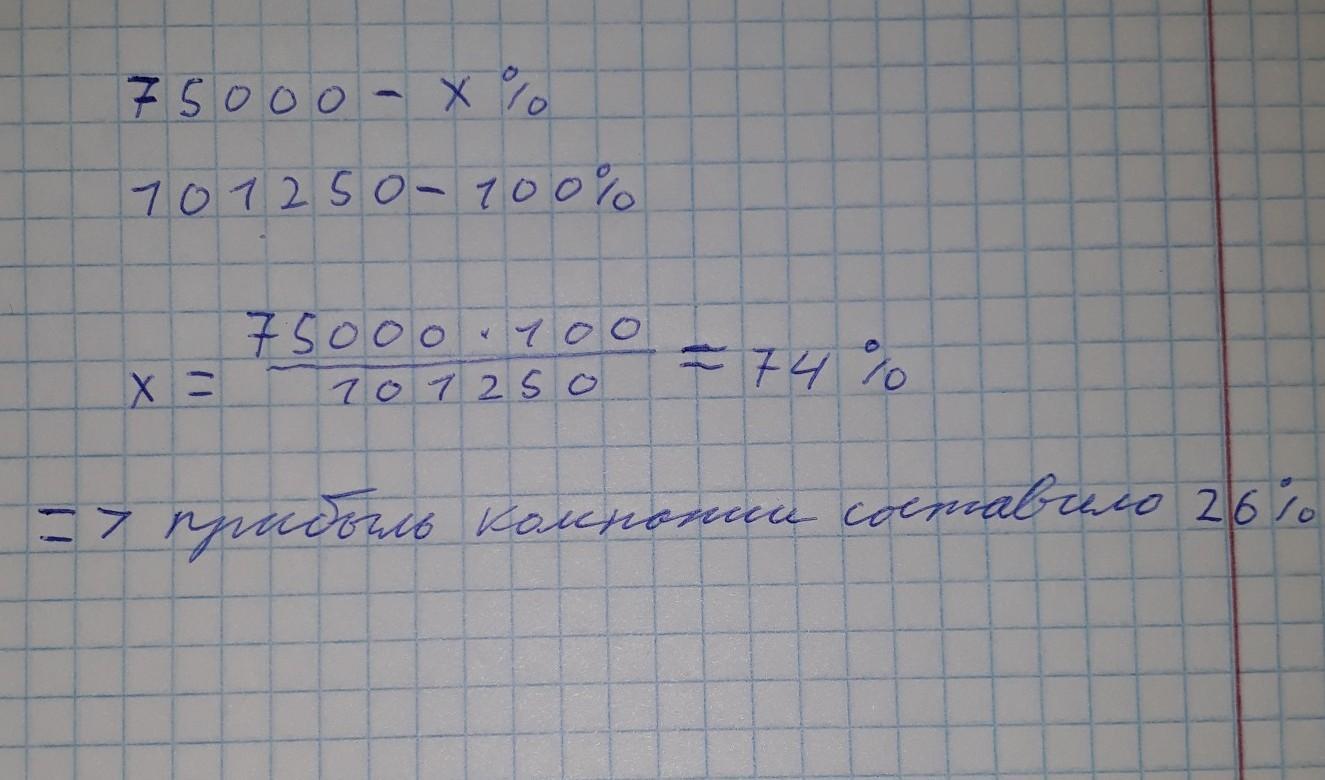 75000 - x %
101250 - 100%
x = 75000 · 100 / 101250 = 74 %
=> прибыль компании составило 26%